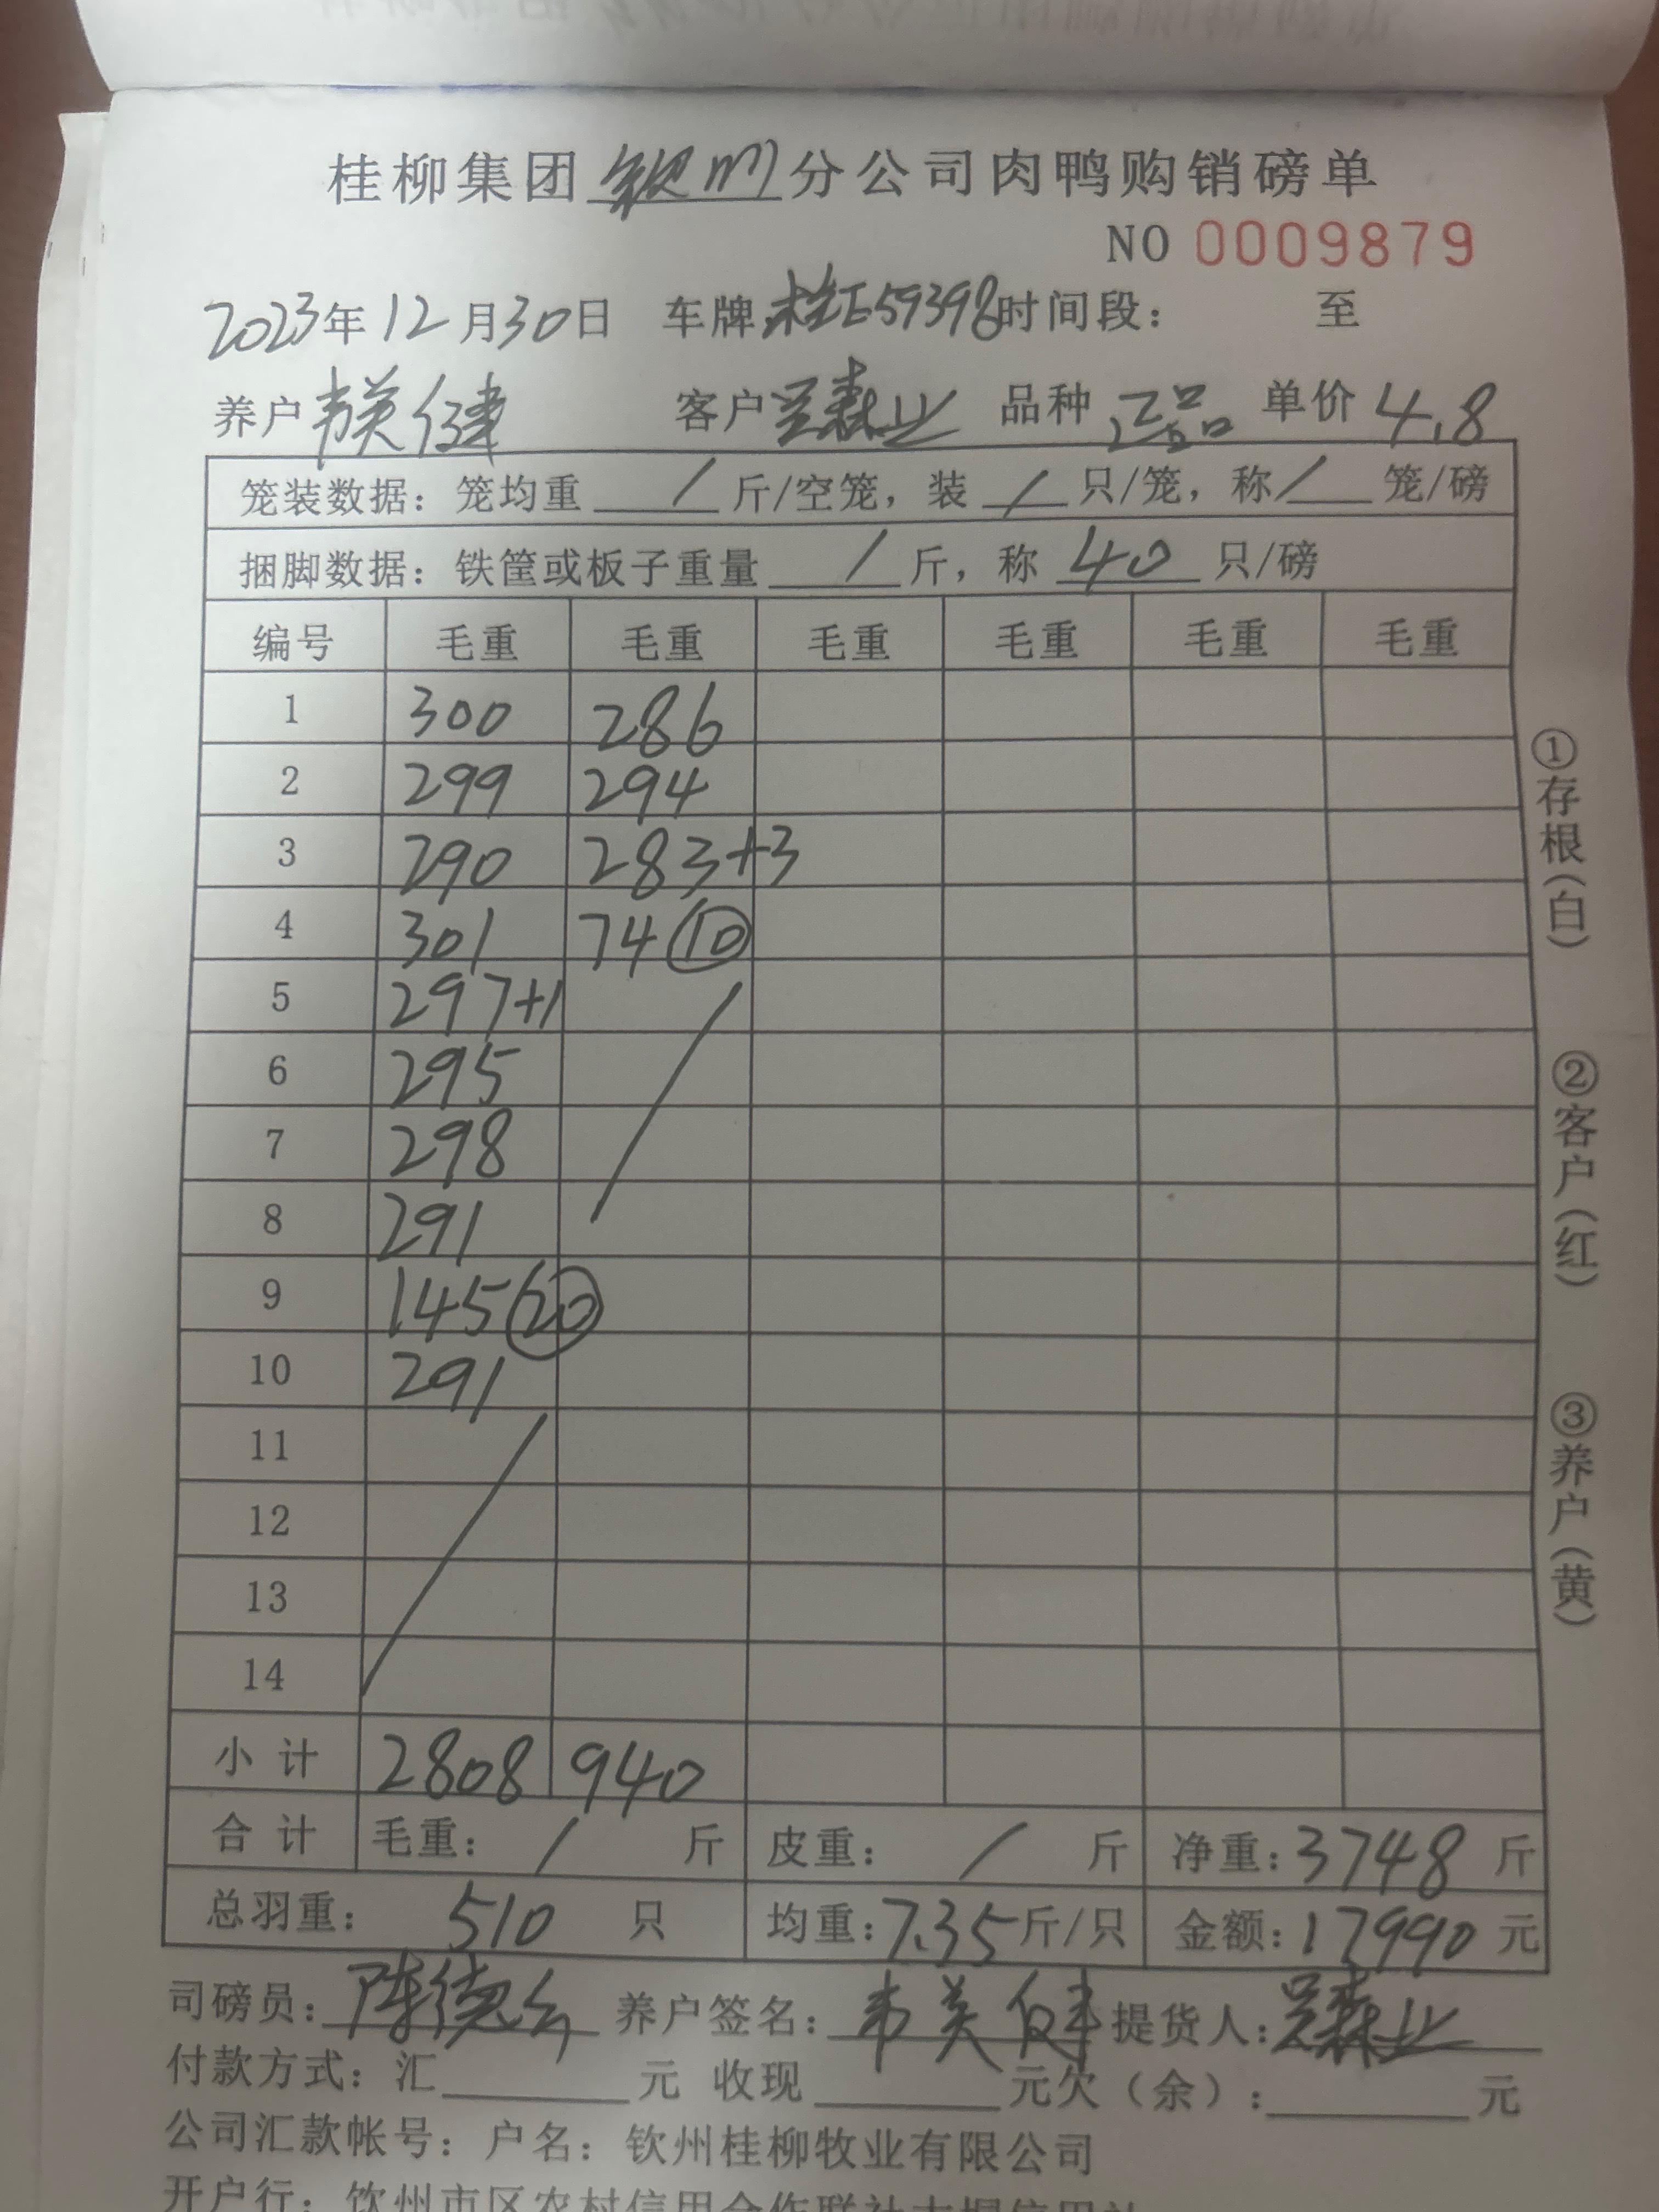 桂柳集团钦州分公司肉鸭购销磅单
NO 0009879
2023年12月30日 车牌 桂E59398 时间段： 至
养户 韦英健 客户 吴森业 品种 正品 单价 4.8
笼装数据：笼均重 / 斤/空笼，装 / 只/笼，称 / 笼/磅
捆脚数据：铁筐或板子重量 / 斤，称 40 只/磅
编号 毛重 毛重 毛重 毛重 毛重 毛重
1 300 286
2 299 294
3 290 283+3
4 301 74 ⑩
5 297+1
6 295
7 298
8 291
9 145 ⑳
10 291
11
12
13
14
小 计 2808 940
合 计 毛重： / 斤 皮重： / 斤 净重：3748 斤
总羽重： 510 只 均重：7.35斤/只 金额：17990 元
司磅员：陈德 养户签名：韦英健 提货人：吴森业
付款方式：汇 元 收现 元欠（余）： 元
公司汇款帐号：户名：钦州桂柳牧业有限公司
开户行：钦州市区农村信用合作联社大垌信用社
①存根（白）
②客户（红）
③养户（黄）